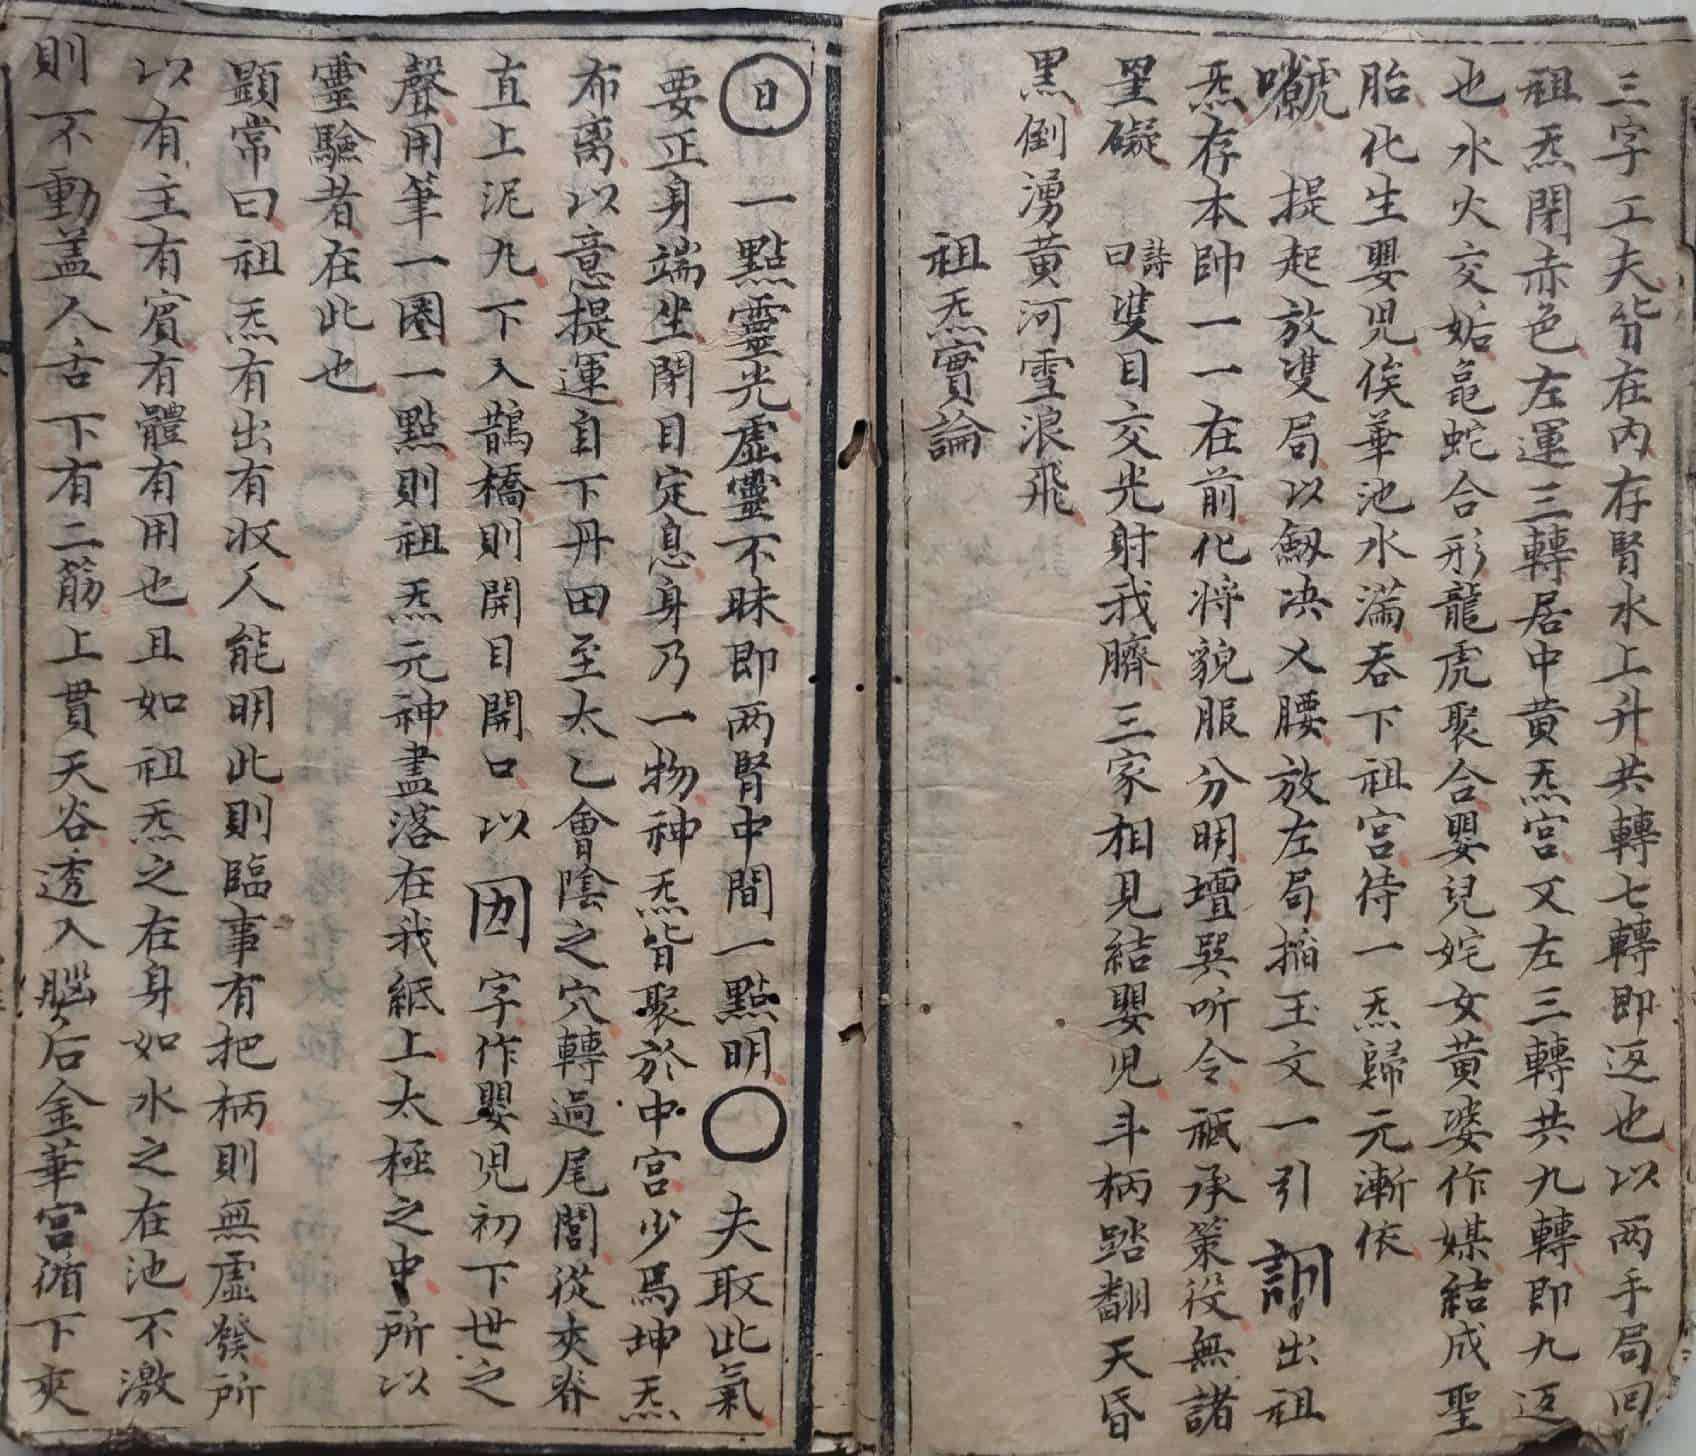 三字工夫皆在內存腎水上升共轉七轉即返也以两手局回
祖炁閉赤色左運三轉居中黄炁宫又左三轉共九轉即九返
也水火交姤黽蛇合形龍虎聚合嬰兒姹女黄婆作媒結成聖
胎化生嬰児俟華池水滿吞下祖宫待一炁歸元漸依
提起放雙局以劔决乂腰放左局搯玉文一引出祖
炁存本帥一一在前化将貌服分明壇巽听令祗承策役無諸
罣礙 詩曰 雙目交光射我臍三家相見結嬰児斗柄踏翻天昏
黒倒湧黄河雪浪飛
祖炁實論
日 一點靈光虛靈不昧即两腎中間一點明〇夫取此氣
要正身端坐閉目定息身乃一物神炁皆聚於中宫少焉坤炁
布离以意提運自下丹田至太乙會陰之穴轉過尾閭從夾脊
直上泥九下入鵲橋則開目開口以囦字作嬰児初下世之
聲用筆一圏一點則祖炁元神盡落在我紙上太極之中所以
靈驗者在此也
顕常曰祖炁有出有收人能明此則臨事有把柄則無虛發所
以有主有賔有體有用也且如祖炁之在身如水之在池不激
則不動盖人舌下有二筋上貫天谷透入腦后金華宫循下夾